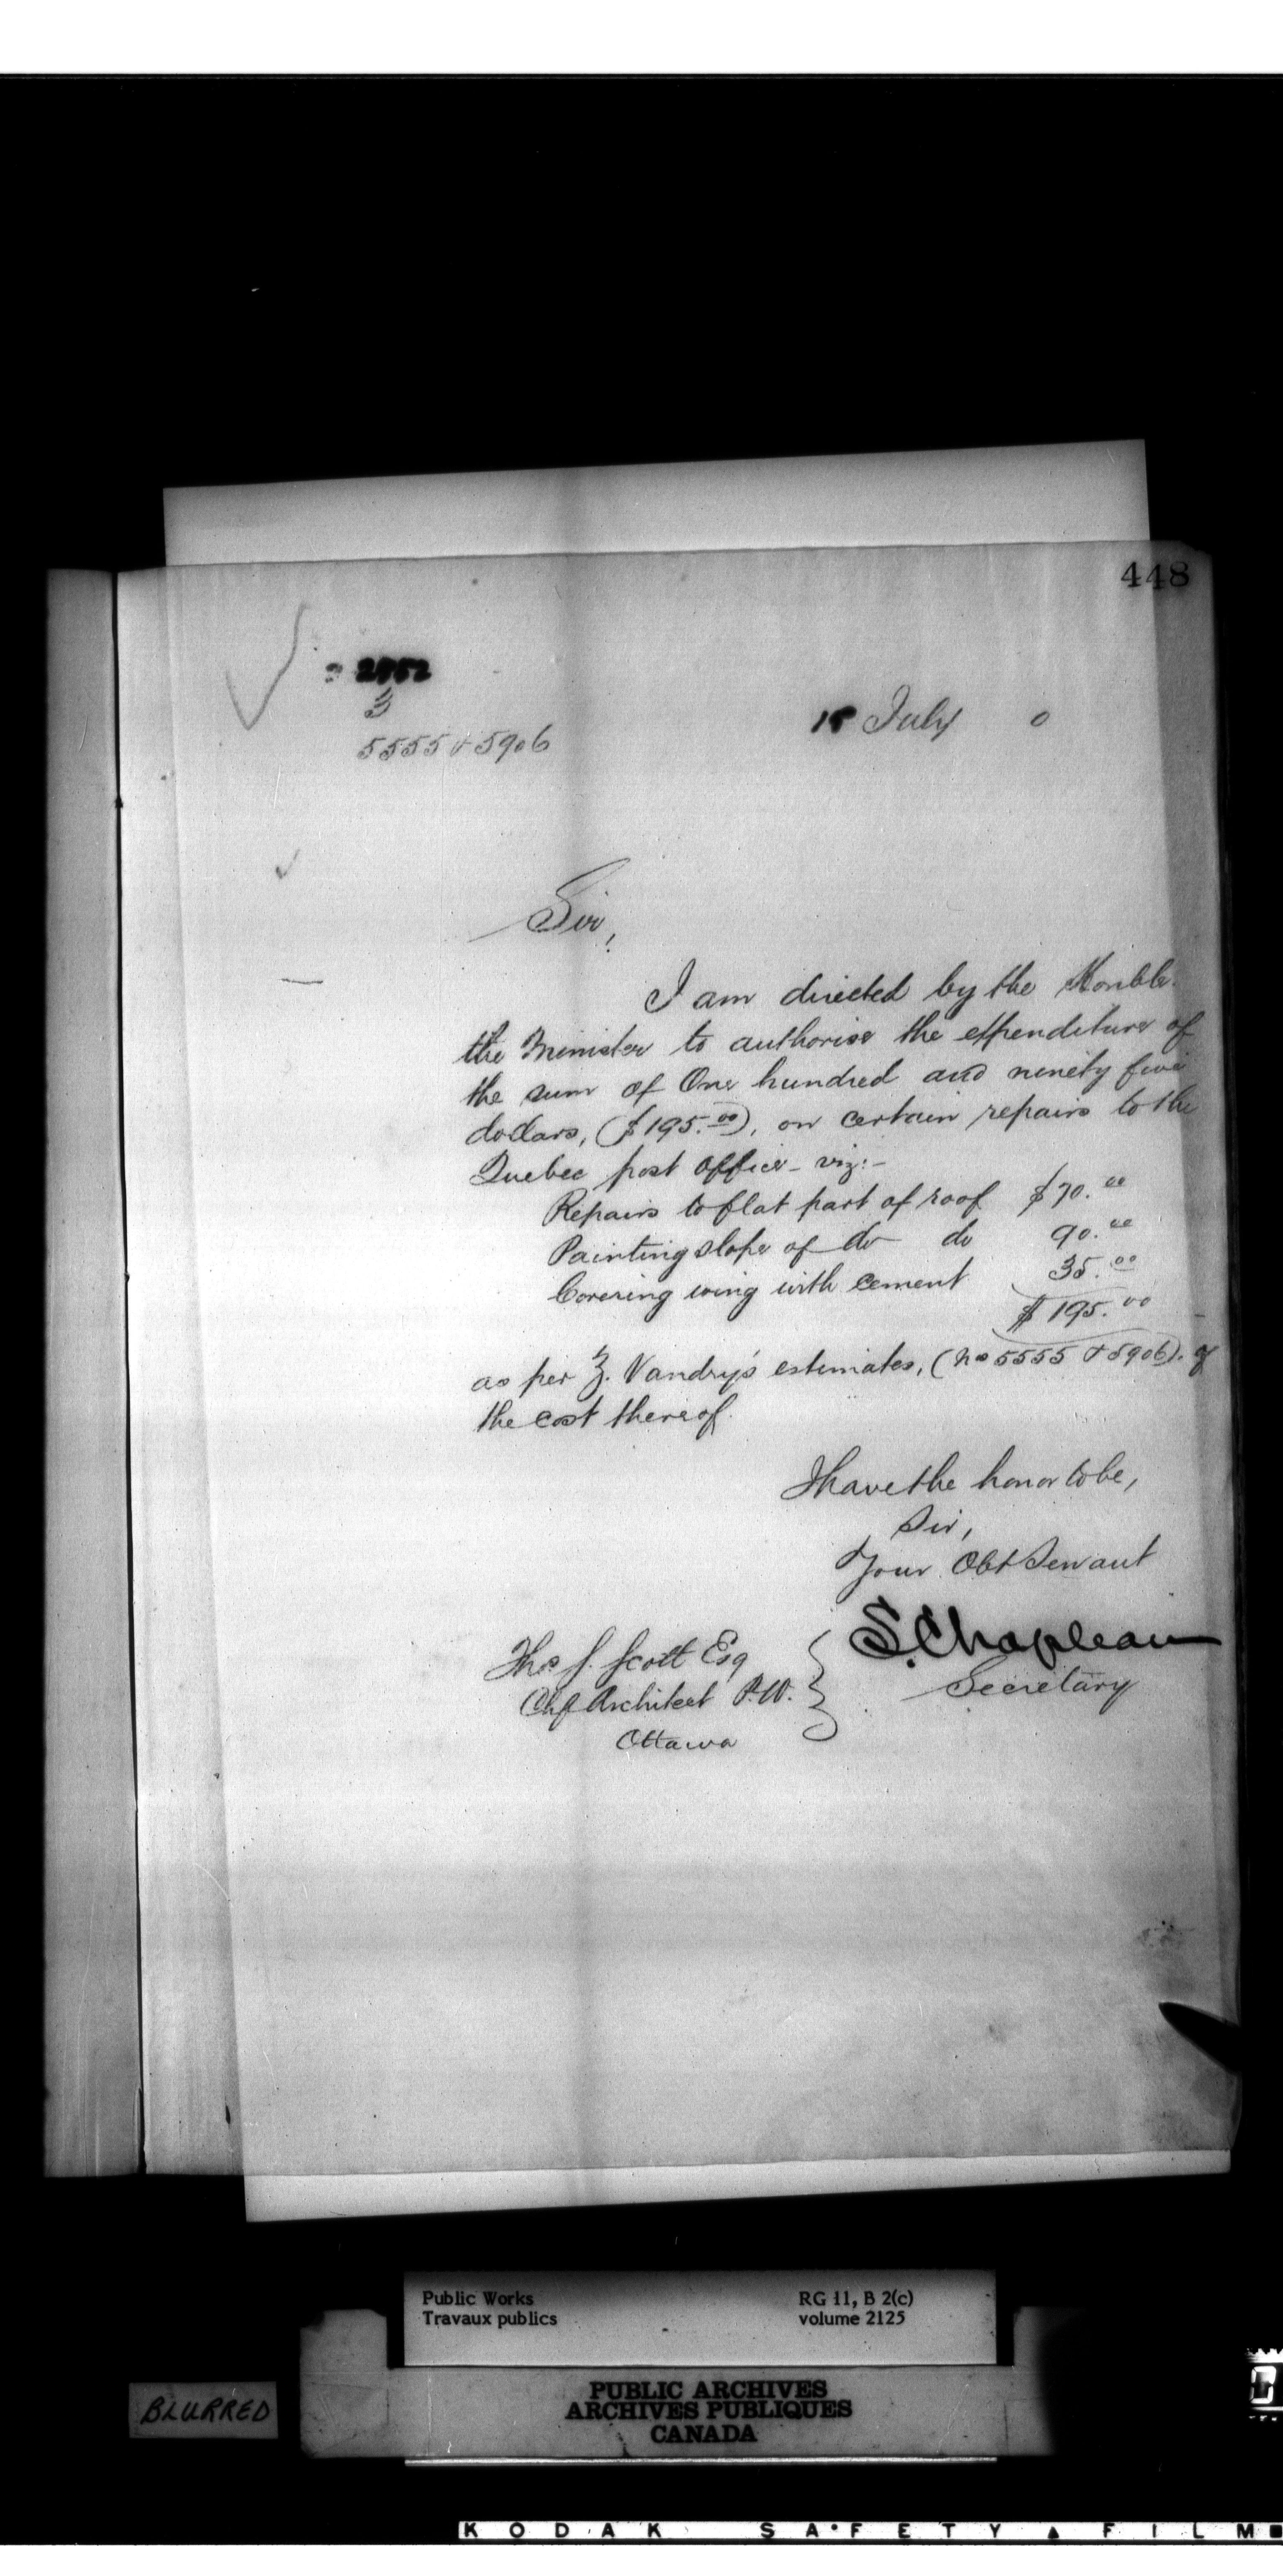 448
2952
3
5555 & 5906
15 July 0
Sir,
I am directed by the Honble
the Minister to authorise the expenditure of
the sum of One hundred and ninety five
dollars, ($195.00), on certain repairs to the
Quebec post office - viz:-
Repairs to flat part of roof $70.00
Painting slope of do do 90.00
Covering wing with cement 35.00
$195.00
as per Z. Vandry's estimates, (No 5555 & 5906). of
the cost thereof.
I have the honor to be,
Sir,
Your Obt Servant
S. Chapleau
Secretary
Thos S. Scott Esq
Chf Architect P.W.
Ottawa
Public Works RG 11, B 2(c)
Travaux publics volume 2125
PUBLIC ARCHIVES
ARCHIVES PUBLIQUES
CANADA
BLURRED
KODAK SAFETY FILM